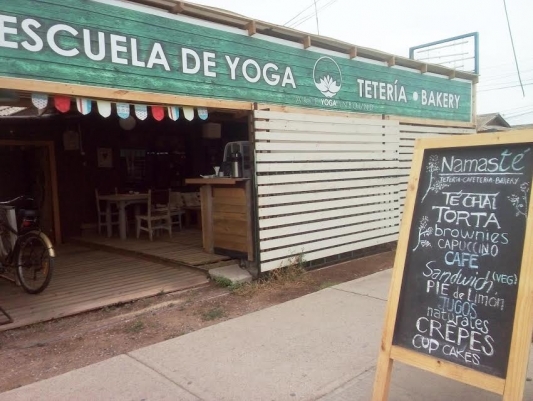 ESCUELA DE YOGA
YOGA
TETERÍA • BAKERY
Namasté
TETERIA-CAFETERIA-BAKERY
TÉ CHAI
TORTA
brownies
CAPUCCINO
CAFÉ
Sandwich (VEG)
PIE de limón
JUGOS
naturales
CRÊPES
CUP CAKES